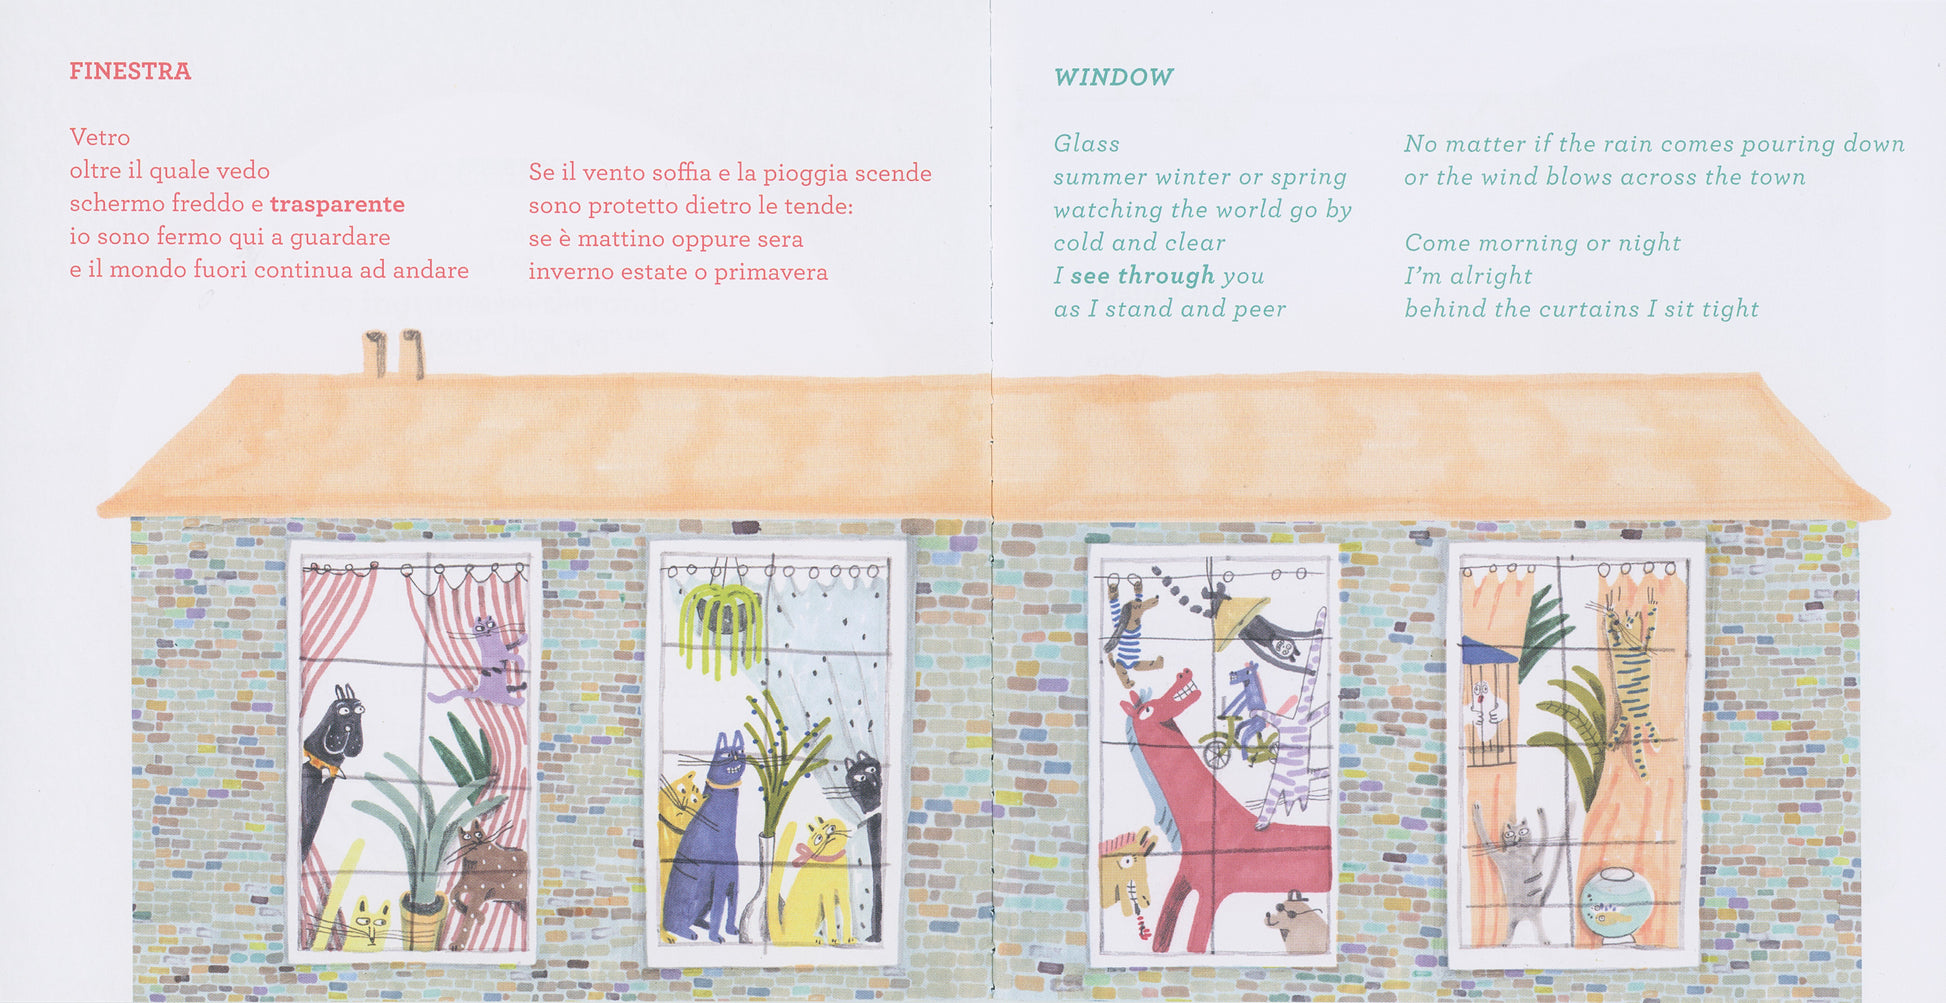 FINESTRA
Vetro
oltre il quale vedo
schermo freddo e trasparente
io sono fermo qui a guardare
e il mondo fuori continua ad andare
Se il vento soffia e la pioggia scende
sono protetto dietro le tende:
se è mattino oppure sera
inverno estate o primavera
WINDOW
Glass
summer winter or spring
watching the world go by
cold and clear
I see through you
as I stand and peer
No matter if the rain comes pouring down
or the wind blows across the town
Come morning or night
I'm alright
behind the curtains I sit tight